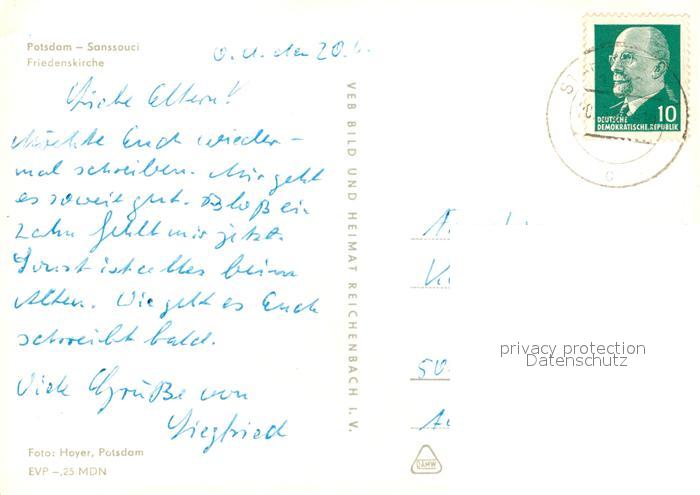 Potsdam – Sanssouci
Friedenskirche
O. U. den 20.
Liebe Eltern!
Möchte Euch wieder-
mal schreiben. Mir geht
es soweit gut. Bloß ein
Zahn fehlt mir jetzt.
Sonst ist alles beim
Alten. Wie geht es Euch
schreibt bald.
Viele Grüße von
Siegfried
Foto: Hoyer, Potsdam
EVP –,25 MDN
VEB BILD UND HEIMAT REICHENBACH I. V.
10
DEUTSCHE
DEMOKRATISCHE REPUBLIK
C
50
privacy protection
Datenschutz
DAMW